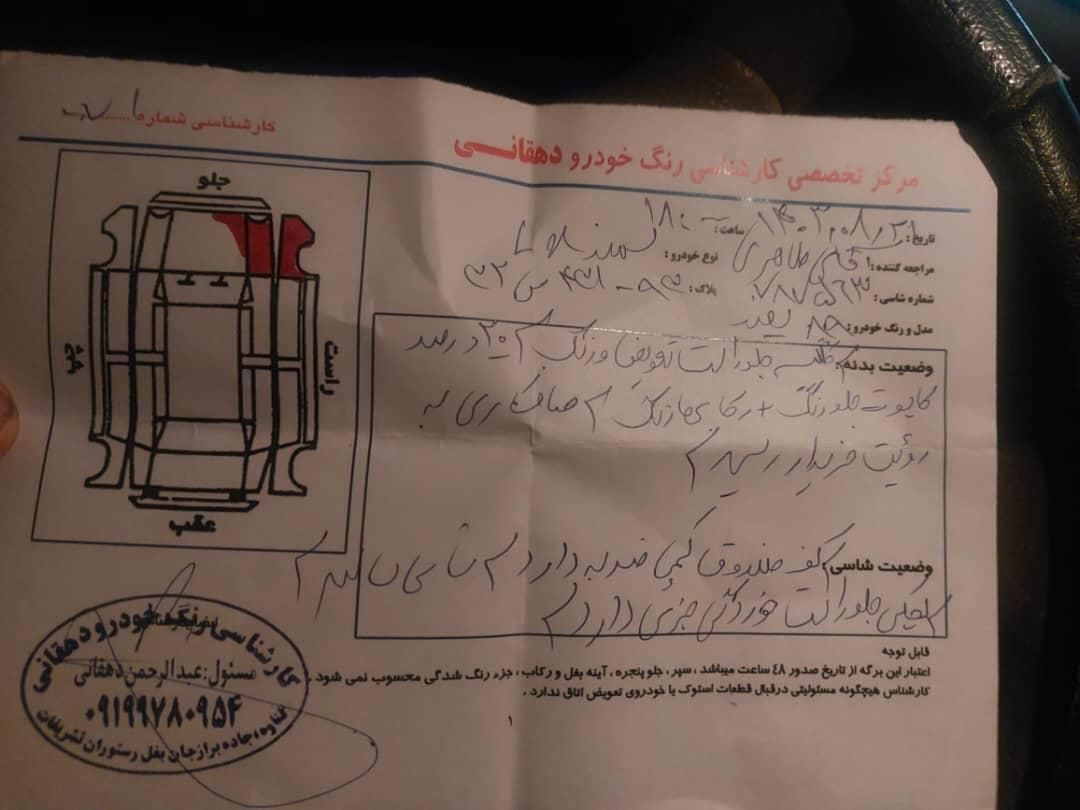 کارشناسی شماره:.....
مرکز تخصصی کارشناسی رنگ خودرو دهقانی
تاریخ: ۱۴۰۳/۰۸/۲۱ ساعت: ۱۸:۰۰
مراجعه کننده: آقای طاهری نوع خودرو: سمند
شماره شاسی: پلاک:
مدل و رنگ خودرو: سفید
جلو
چپ
راست
عقب
وضعیت بدنه: گلگیر جلو راست تعویض و رنگ ۲۰ درصد
کاپوت جلو رنگ + رکابها رنگ صافکاری به
رؤیت خریدار رسید
وضعیت شاسی: کف صندوق کمی ضربه دارد شاسی سالم
جلو راست خوردگی جزئی دارد
قابل توجه
اعتبار این برگه از تاریخ صدور ٤٨ ساعت میباشد ، سپر ، جلو پنجره ، آینه بغل و رکاب ، جزء رنگ شدگی محسوب نمی شود .
کارشناس هیچگونه مسئولیتی درقبال قطعات استوک یا خودروی تعویض اتاق ندارد .
۱
کارشناسی رنگ خودرو دهقانی
مسئول: عبدالرحمن دهقانی
۰۹۱۹۹۷۸۰۹۵۴
گناوه، جاده برازجان بغل رستوران تشریفات